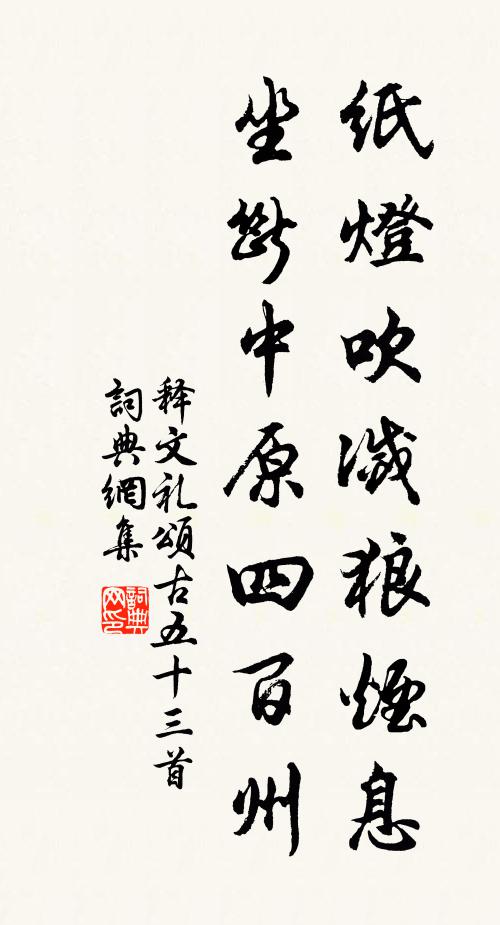 紙燈吹滅狼煙息
坐斷中原四百州
释文礼頌古五十三首
詞典網集
詞典网印